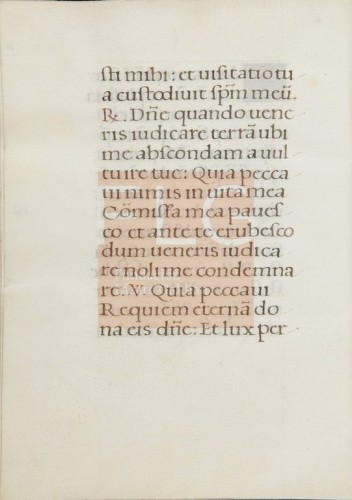 sti mihi: et uisitatio tu
a custodiuit spm̃ meũ.
R. Dñe quando uene
ris iudicare terrã ubi
me abscondam a uul
tu ire tue: Quia pecca
ui nimis in uita mea
Cõmissa mea paues
co et ante te erubesco
dum ueneris iudica
re noli me condemna
re. V. Quia peccaui
Requiem eternã do
na eis dñe: Et lux per